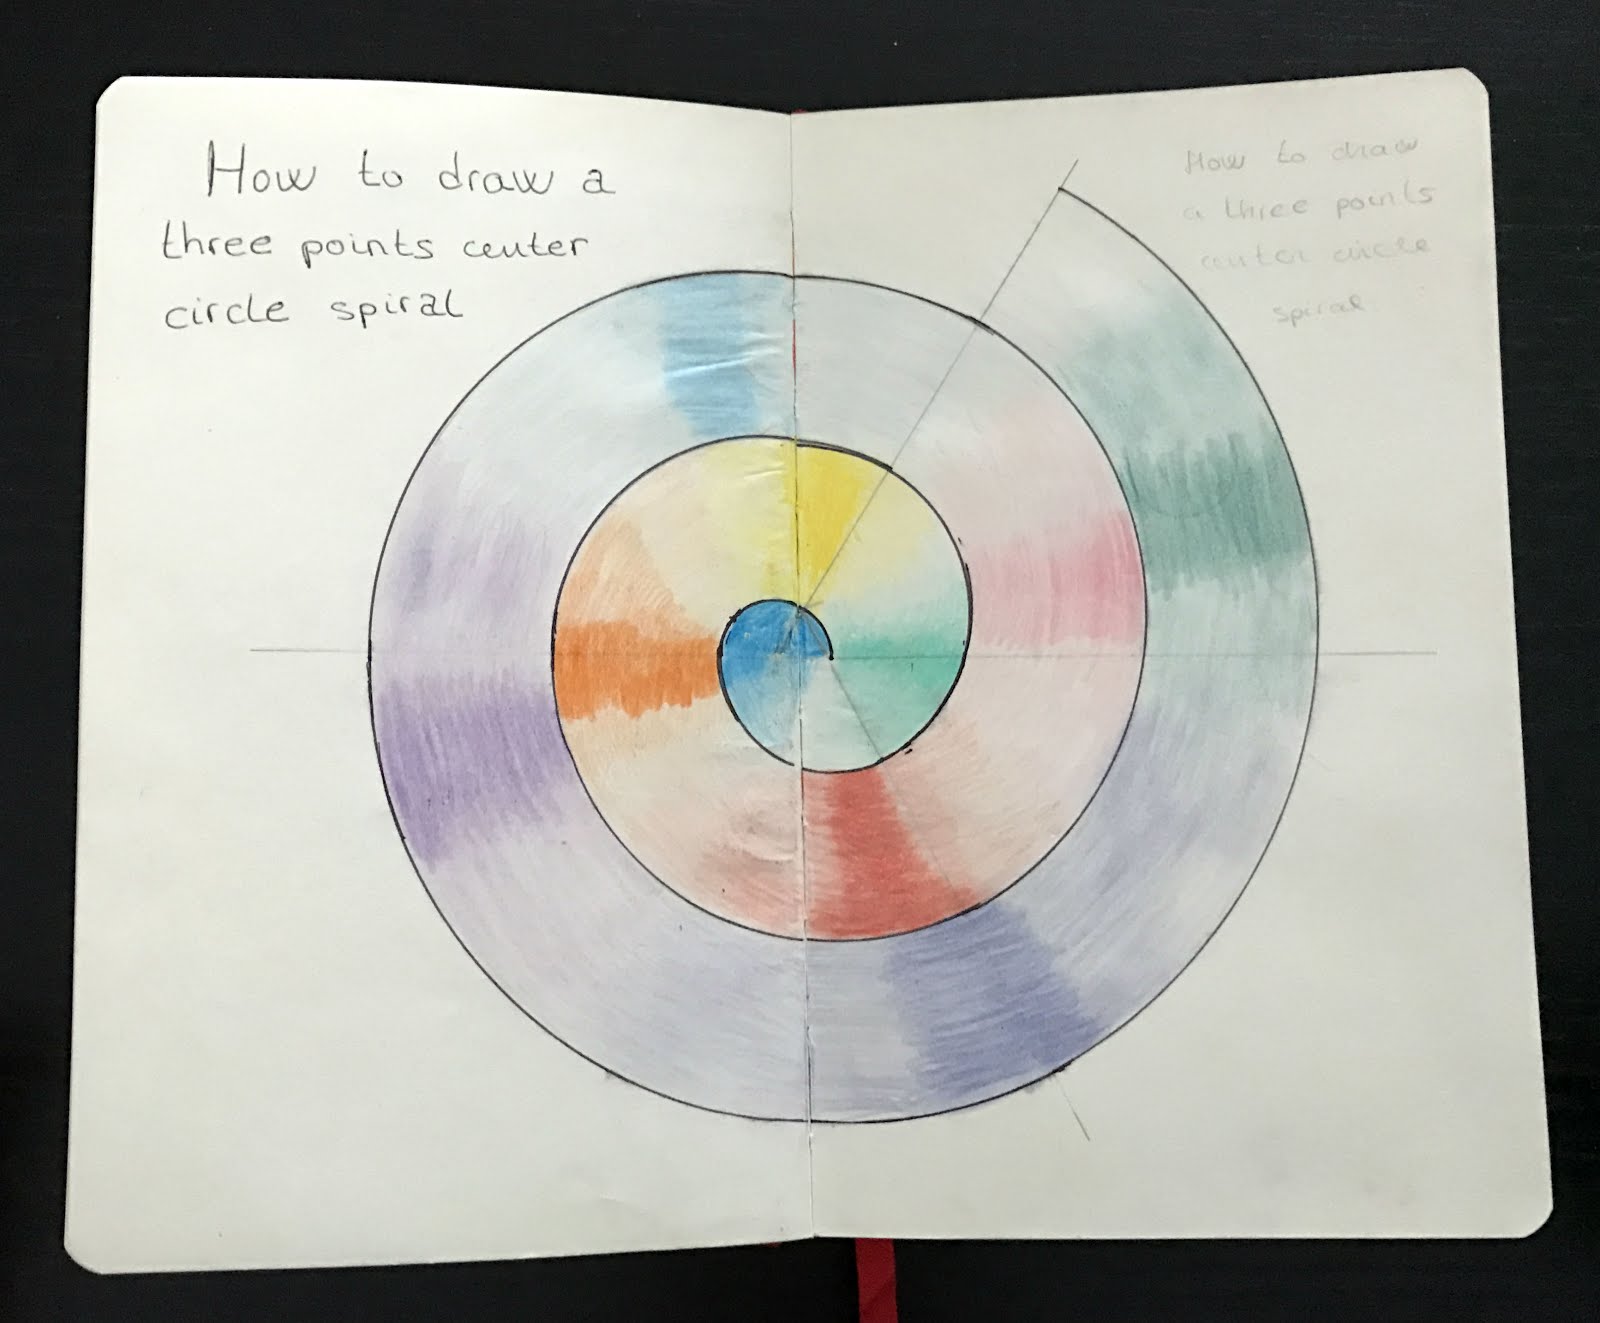 How to draw a
three points center
circle spiral
How to draw
a three points
center circle
spiral